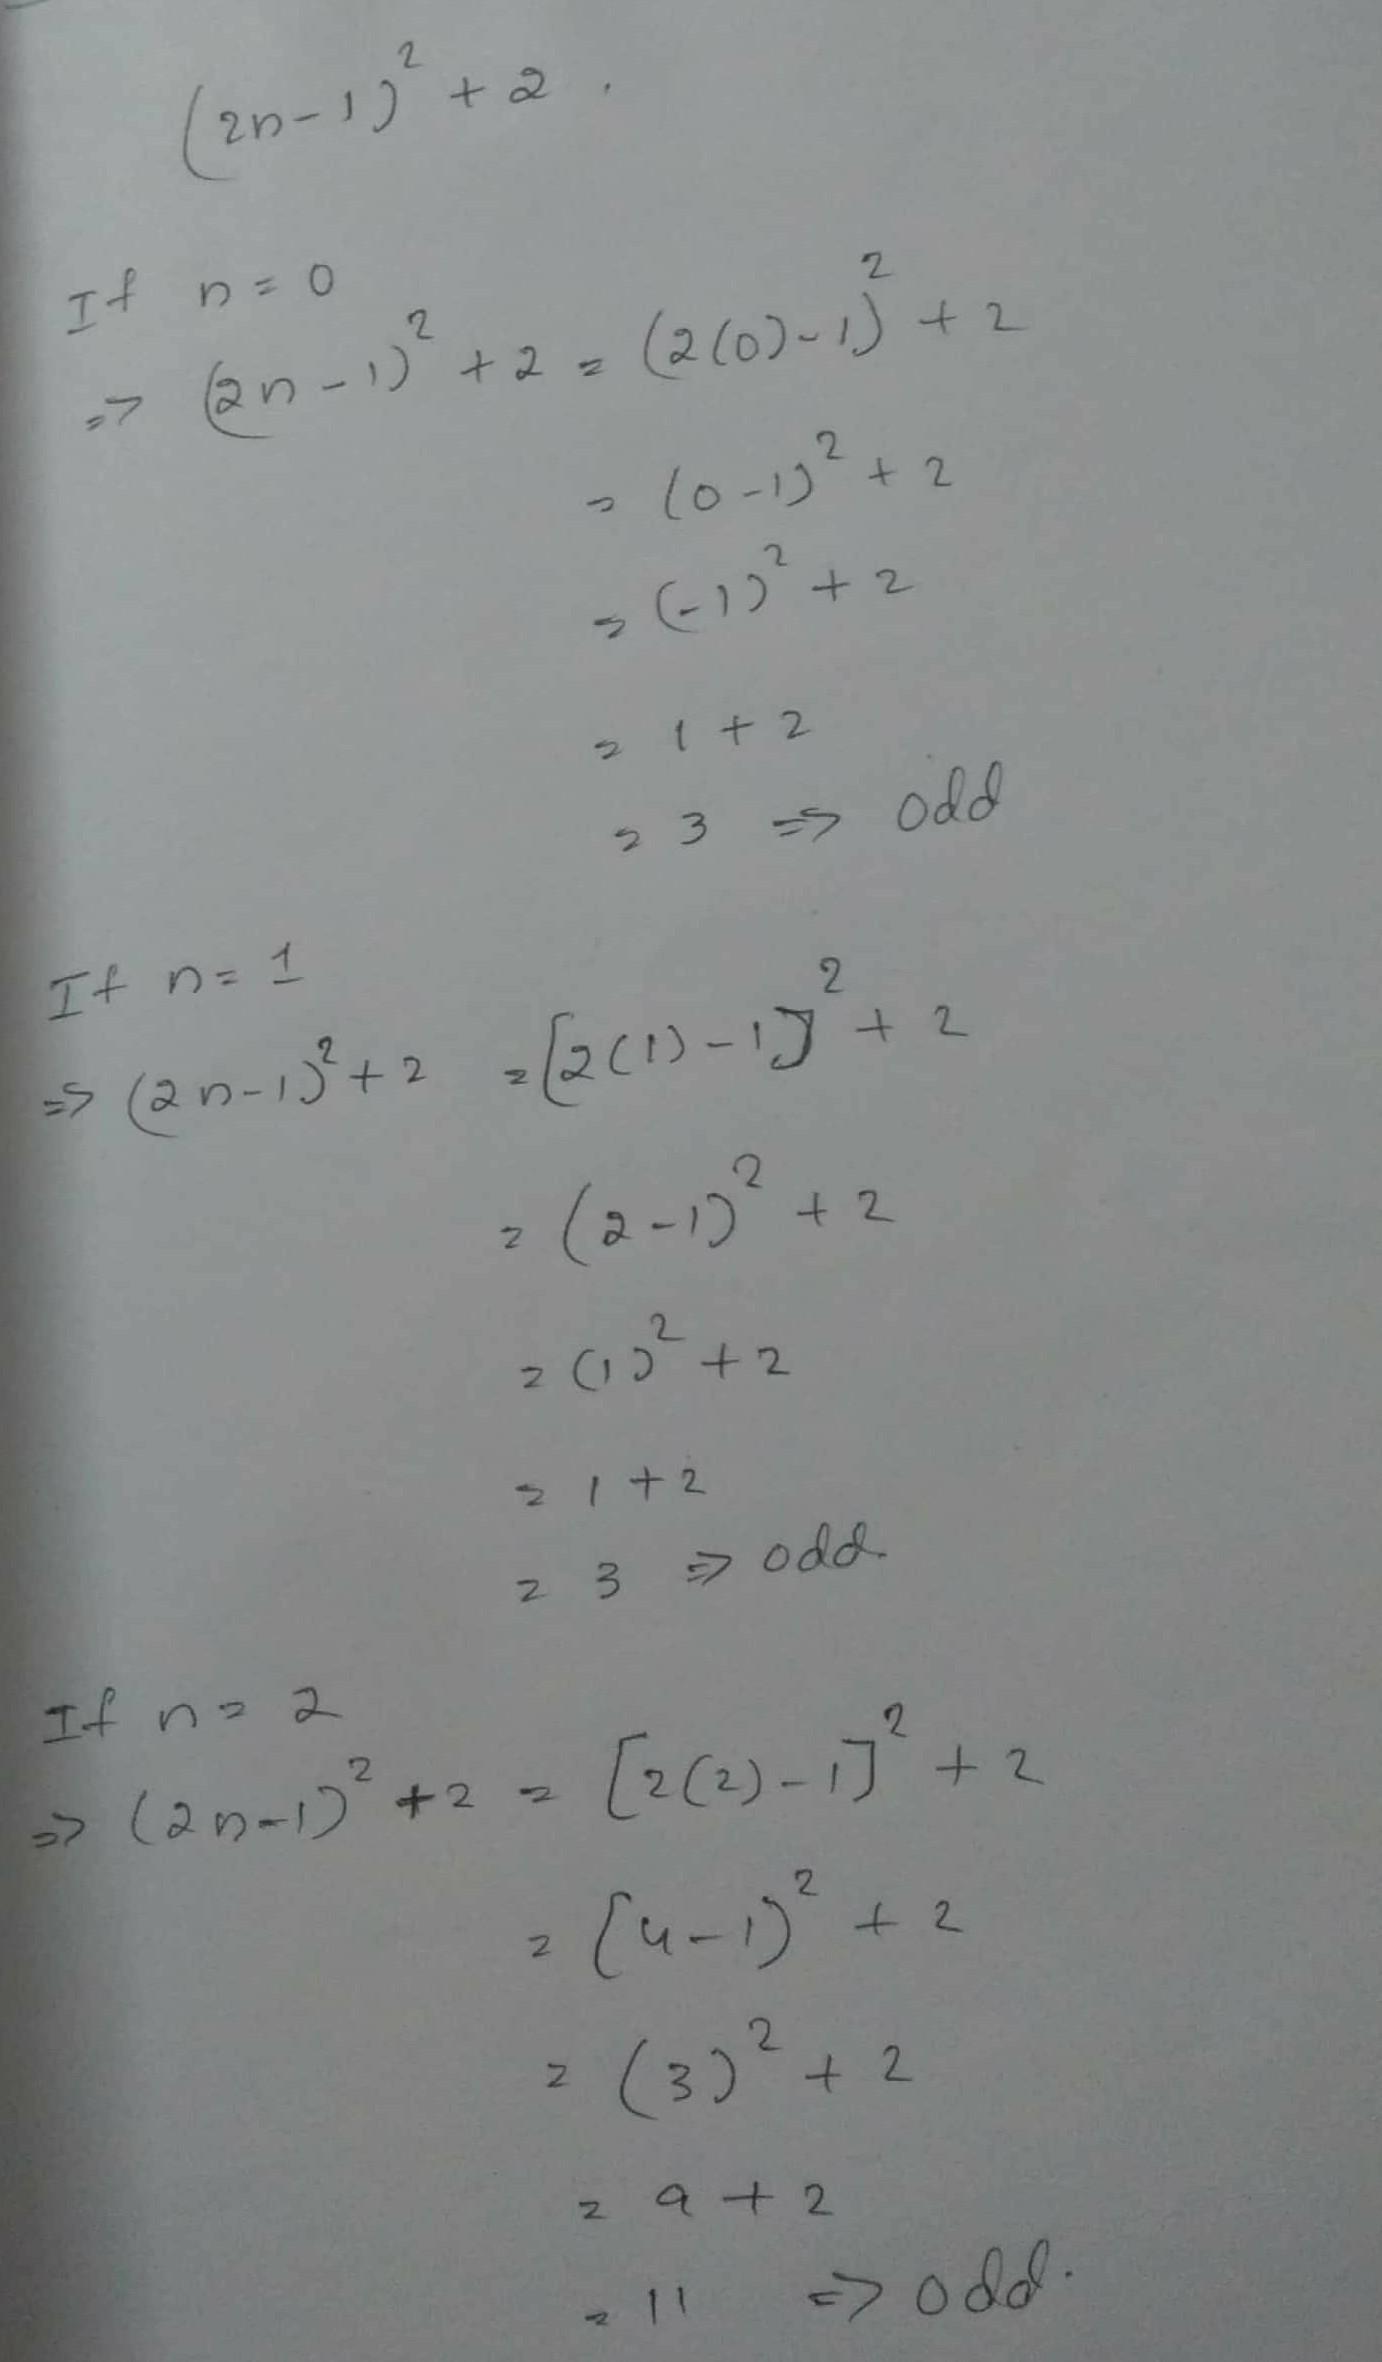 (2n-1)² + 2.
If n = 0
=> (2n-1)² + 2 = (2(0)-1)² + 2
= (0-1)² + 2
= (-1)² + 2
= 1 + 2
= 3 => odd
If n = 1
=> (2n-1)² + 2 = [2(1)-1]² + 2
= (2-1)² + 2
= (1)² + 2
= 1 + 2
= 3 => odd.
If n = 2
=> (2n-1)² + 2 = [2(2)-1]² + 2
= (4-1)² + 2
= (3)² + 2
= 9 + 2
= 11 => odd.